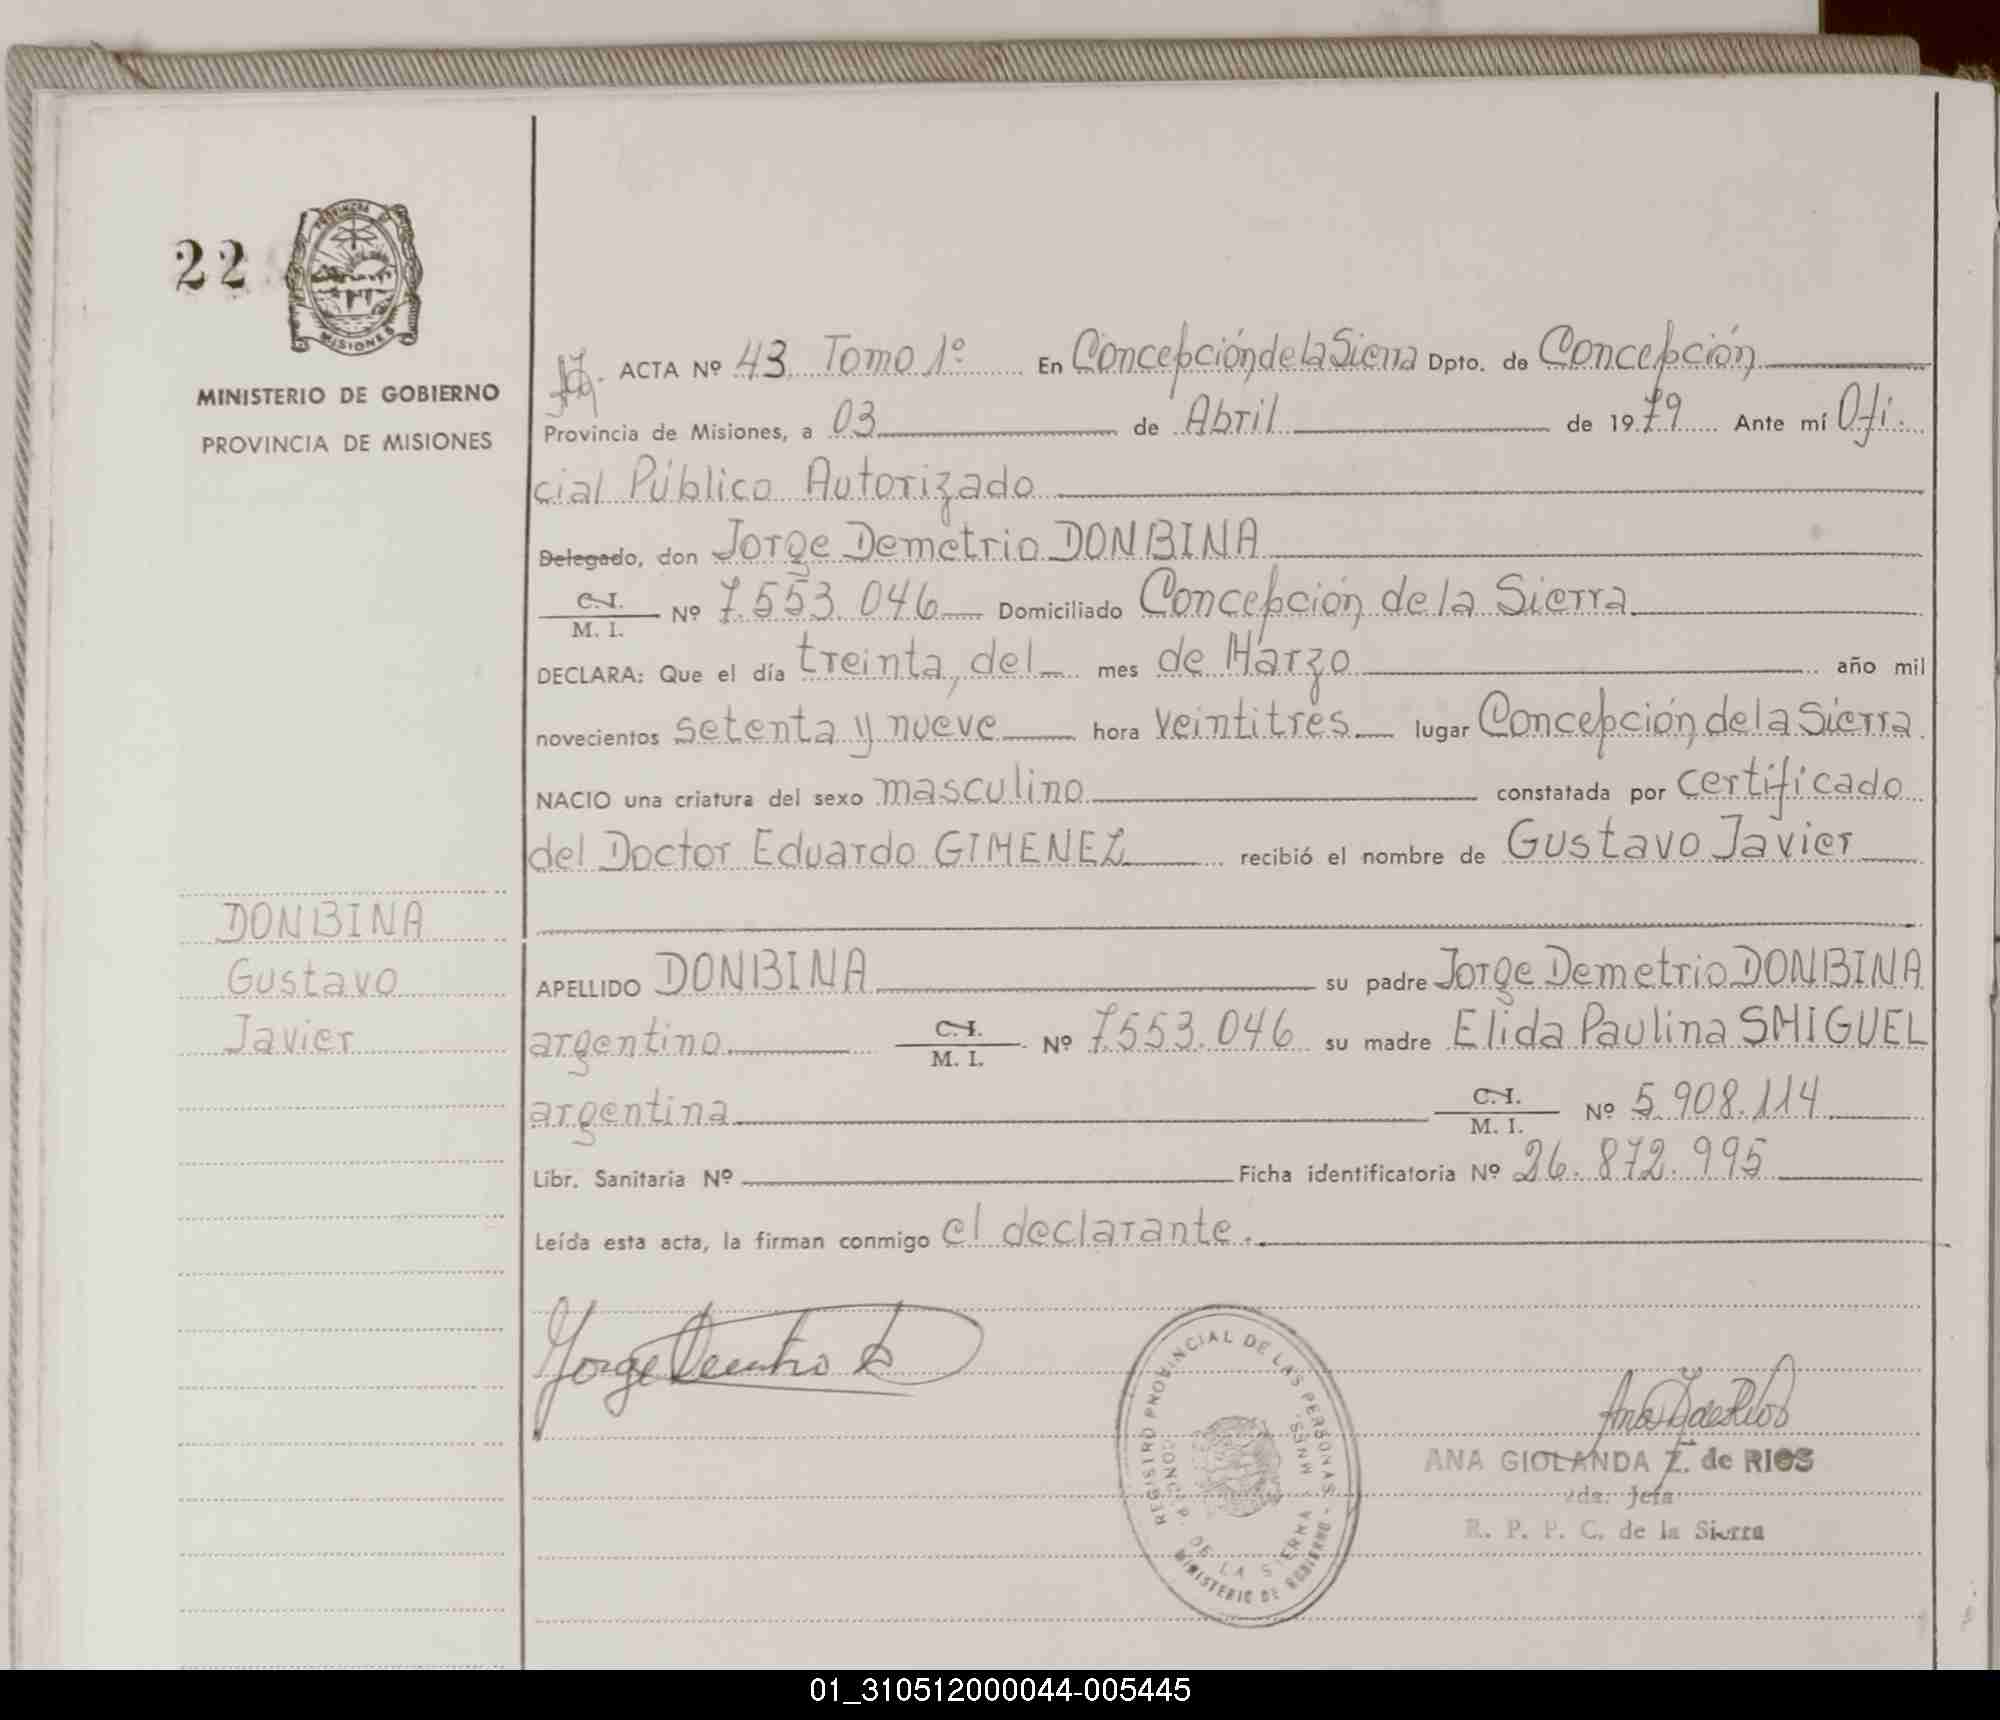 22
PROVINCIA DE
MISIONES
MINISTERIO DE GOBIERNO
PROVINCIA DE MISIONES
ACTA Nº 43 Tomo 1º En Concepción de la Sierra Dpto. de Concepción
Provincia de Misiones, a 03 de Abril de 1979 Ante mí Ofi-
cial Público Autorizado
Delegado, don Jorge Demetrio DONBINA
C. I.
M. I. Nº 7.553.046 Domiciliado Concepción de la Sierra
DECLARA: Que el día treinta, del mes de Marzo año mil
novecientos setenta y nueve hora veintitres lugar Concepción de la Sierra
NACIO una criatura del sexo masculino constatada por certificado
del Doctor Eduardo GIMENEZ recibió el nombre de Gustavo Javier
DONBINA
Gustavo
Javier
APELLIDO DONBINA su padre Jorge Demetrio DONBINA
argentino C. I.
M. I. Nº 7.553.046 su madre Elida Paulina SMIGUEL
argentina C. I.
M. I. Nº 5.908.114
Libr. Sanitaria Nº Ficha identificatoria Nº 26.872.995
Leída esta acta, la firman conmigo el declarante.
Jorge Demetrio D
REGISTRO PROVINCIAL DE LAS PERSONAS -
MINISTERIO DE GOBIERNO
CONCP. DE LA SIERRA MNES.
Ana Z de Rios
ANA GIOLANDA Z. de RIOS
2da. Jefa
R. P. P. C. de la Sierra
01_310512000044-005445